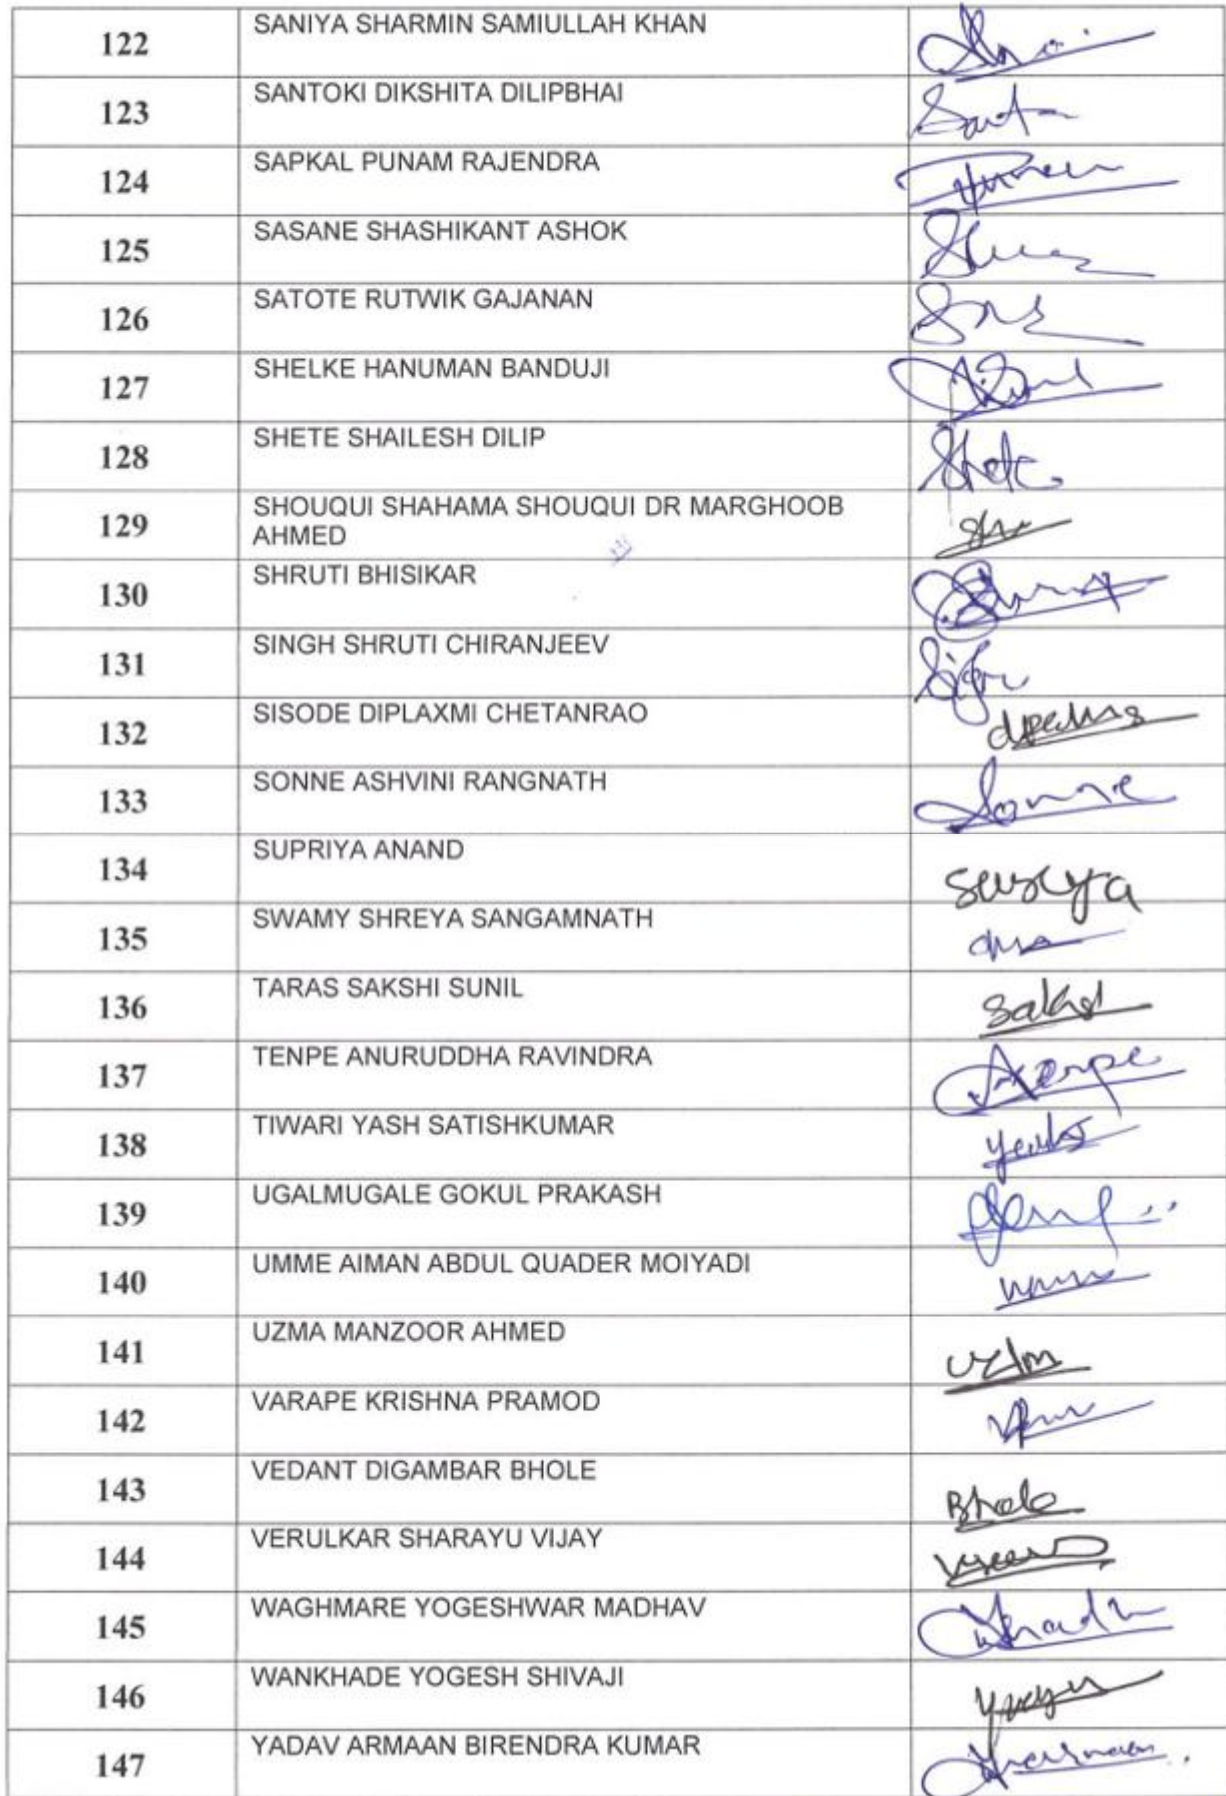 122 SANIYA SHARMIN SAMIULLAH KHAN
123 SANTOKI DIKSHITA DILIPBHAI
124 SAPKAL PUNAM RAJENDRA
125 SASANE SHASHIKANT ASHOK
126 SATOTE RUTWIK GAJANAN
127 SHELKE HANUMAN BANDUJI
128 SHETE SHAILESH DILIP
129 SHOUQUI SHAHAMA SHOUQUI DR MARGHOOB
AHMED
130 SHRUTI BHISIKAR
131 SINGH SHRUTI CHIRANJEEV
132 SISODE DIPLAXMI CHETANRAO
133 SONNE ASHVINI RANGNATH Sonne
134 SUPRIYA ANAND
135 SWAMY SHREYA SANGAMNATH
136 TARAS SAKSHI SUNIL
137 TENPE ANURUDDHA RAVINDRA
138 TIWARI YASH SATISHKUMAR
139 UGALMUGALE GOKUL PRAKASH
140 UMME AIMAN ABDUL QUADER MOIYADI
141 UZMA MANZOOR AHMED
142 VARAPE KRISHNA PRAMOD
143 VEDANT DIGAMBAR BHOLE Bhole
144 VERULKAR SHARAYU VIJAY
145 WAGHMARE YOGESHWAR MADHAV
146 WANKHADE YOGESH SHIVAJI
147 YADAV ARMAAN BIRENDRA KUMAR